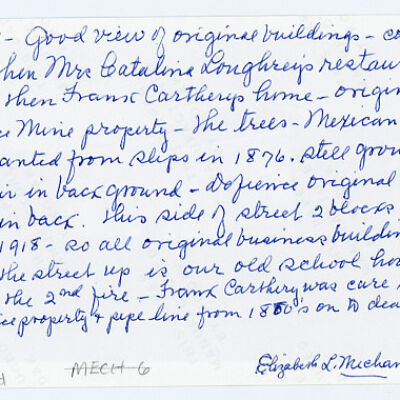 - Good view of original buildings - co
hen Mrs Catalina Loughrey's restau
then Frank Carthery's home - origin
Mine property - The trees - Mexican
anted from slips in 1876. still grow
in background - Defience original
in back. This side of street 2 blocks
1918 - so all original business buildin
the street up is our old school ho
the 2nd fire - Frank Carthery was care
property & pipe line from 18's on to dea
MECH 6
Elizabeth L. Mechan